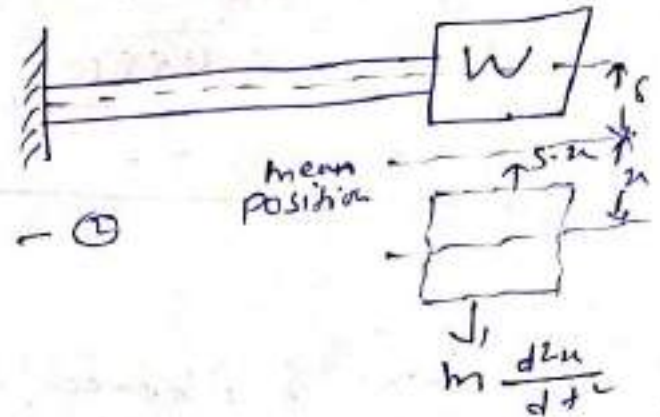 W
δ
mean
position
s·x
x
- ②
m d²x
dt²